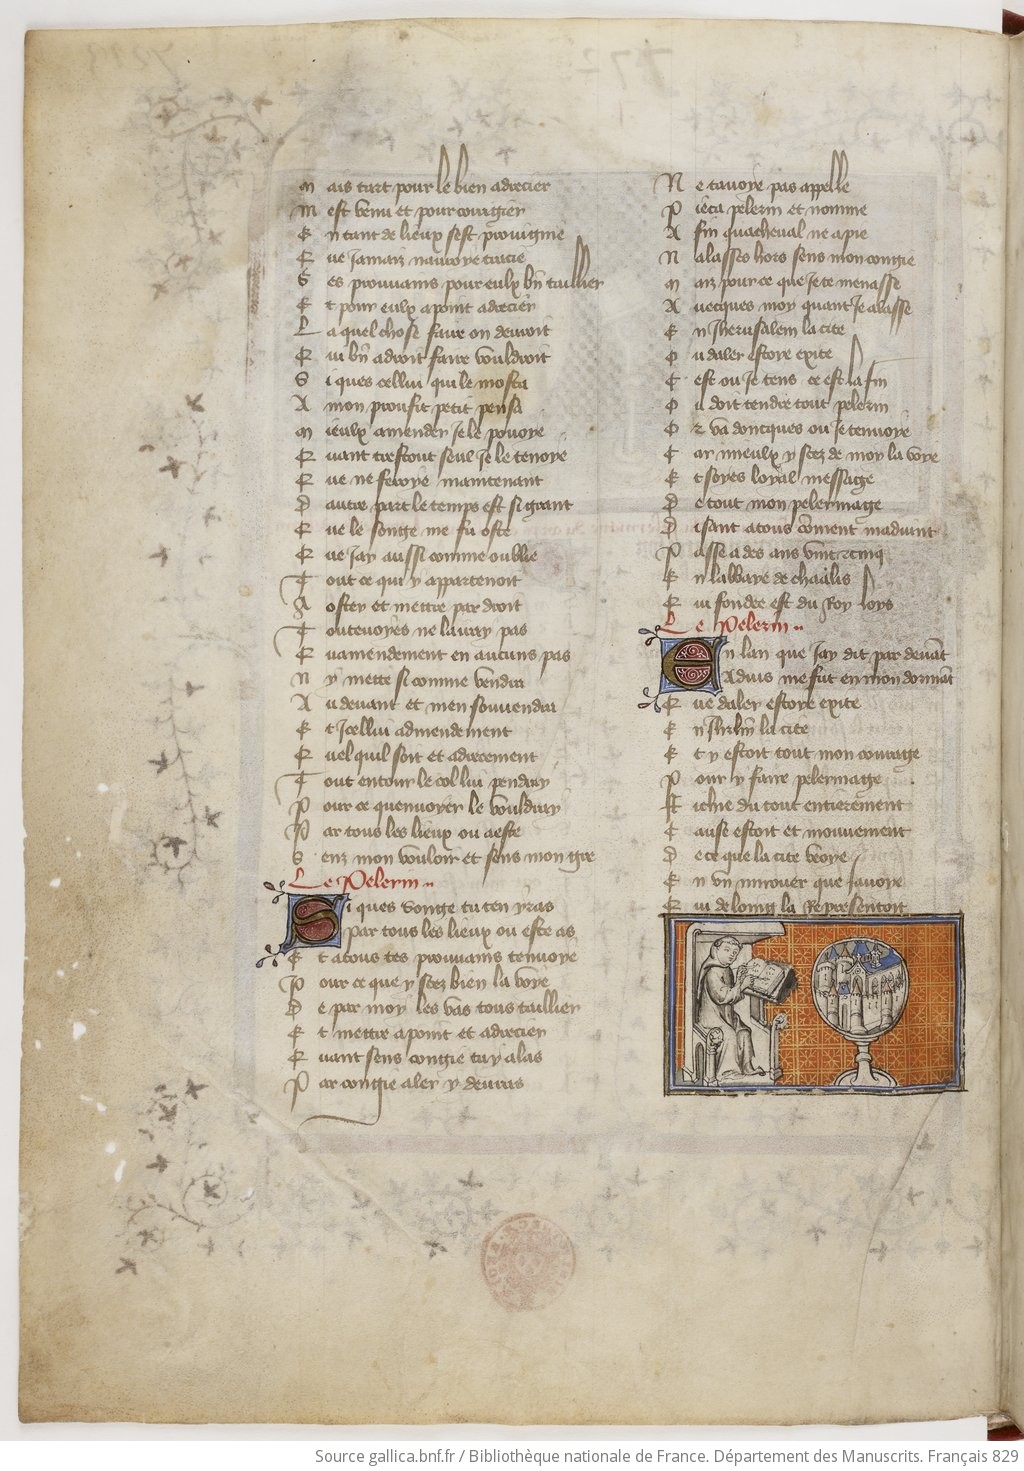 Mais tart pour le bien adrecier
Mest venu et pour courigier
En tant de lieux sest prouigine
Que Jamaiz nauroye tracie
Ses prouuains pour eulx bn taillier
Et pour eulx a point adrecier
La quel chose faire on deuroit
Qui bn adroit faire vouldroit
Si ques cellui qui le mosta
A mon proufit petit pensa
Mieulx amender Je le pouoye
Quant trestout seul Je le tenoye
Que ne feroye maintenant
Dautre part le temps est si grant
Que le songe me fu oste
Que Jay aussi comme oublie
Tout ce qui y appartenoit
A oster et mettre par droit
Toutenoyes ne lairay pas
Quamendement en aucuns pas
Ny mette si comme vendra
Au deuant et men souuendra
Et Jcellui admendement
Quel quil soit et adrecement
Tout entour le col lui pendray
Pour ce quenuoyer le vouldray
Par tous les lieux ou a este
Senz mon vouloir et sens mon gre
Le Pelerin
Si ques Songe tu ten yras
Par tous les lieux ou este as
Et a tous tes prouuains tenuoye
Pour ce que y scez bien la voye
De par moy les vas tous taillier
Et mettre a point et adrecier
Quant sens congie tu y alas
Par congie aler y deuras
Ne tauoye pas appelle
Pieca pelerin et nomme
Afin qua cheual ne a pie
Nalasses hors sens mon congie
Maiz pour ce que Je te menasse
Auecques moy quant Je alasse
En Jherusalem la cite
Ou daler estoye exite
Cest ou Je tens ce est la fin
Ou doit tendre tout pelerin
Or va doncques ou Je tenuoye
Car mieulx y scez de moy la voye
Et soyes loyal message
De tout mon pelerinage
Disant a tous coment maduint
Passe a des ans vint et cinq
En labbaye de chaalis
Qui fondee est du Roy loys
Le Pelerin
En lan que Jay dit par deuat
Aduis me fut en mon dormat
Que daler estoye exite
En Jhrlm la cite
Et y estoit tout mon courage
Pour y faire pelerinage
Fichie du tout entierement
Cause estoit et mouuement
De ce que la cite veoye
En vn mirouer que Jauoye
Qui de loing la Representoit
Source gallica.bnf.fr / Bibliothèque nationale de France. Département des Manuscrits. Français 829